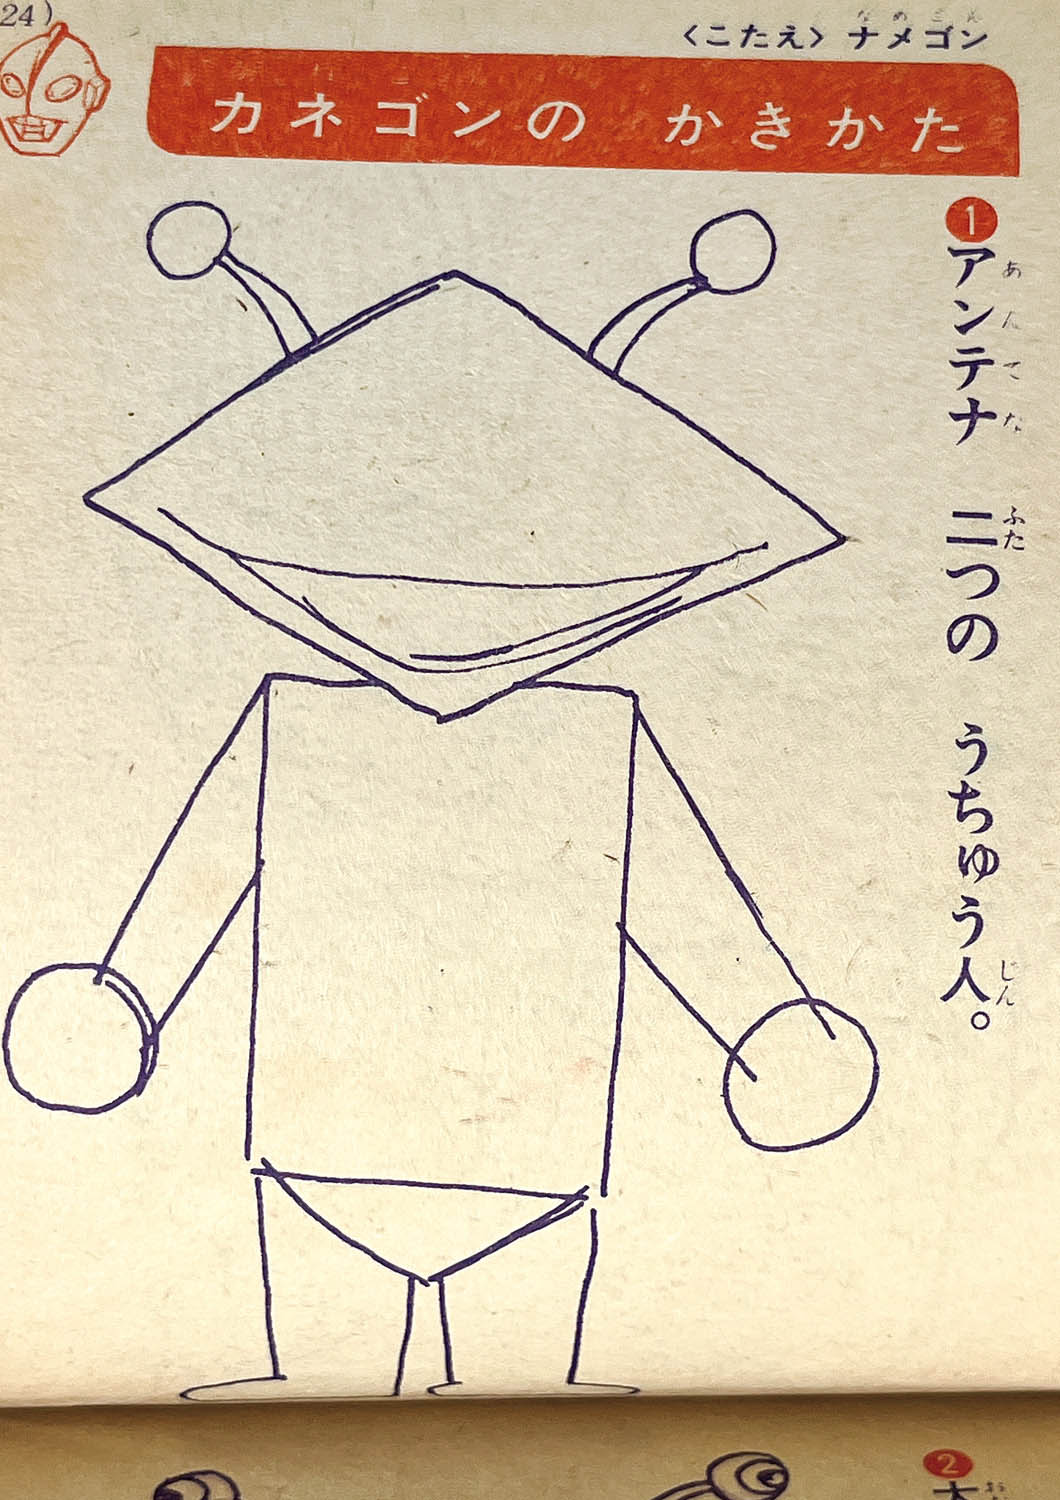 24)
〈こたえ〉ナメゴン
カネゴンの かきかた
1
アンテナ 二つの うちゅう人。
あんてな ふた じん
2